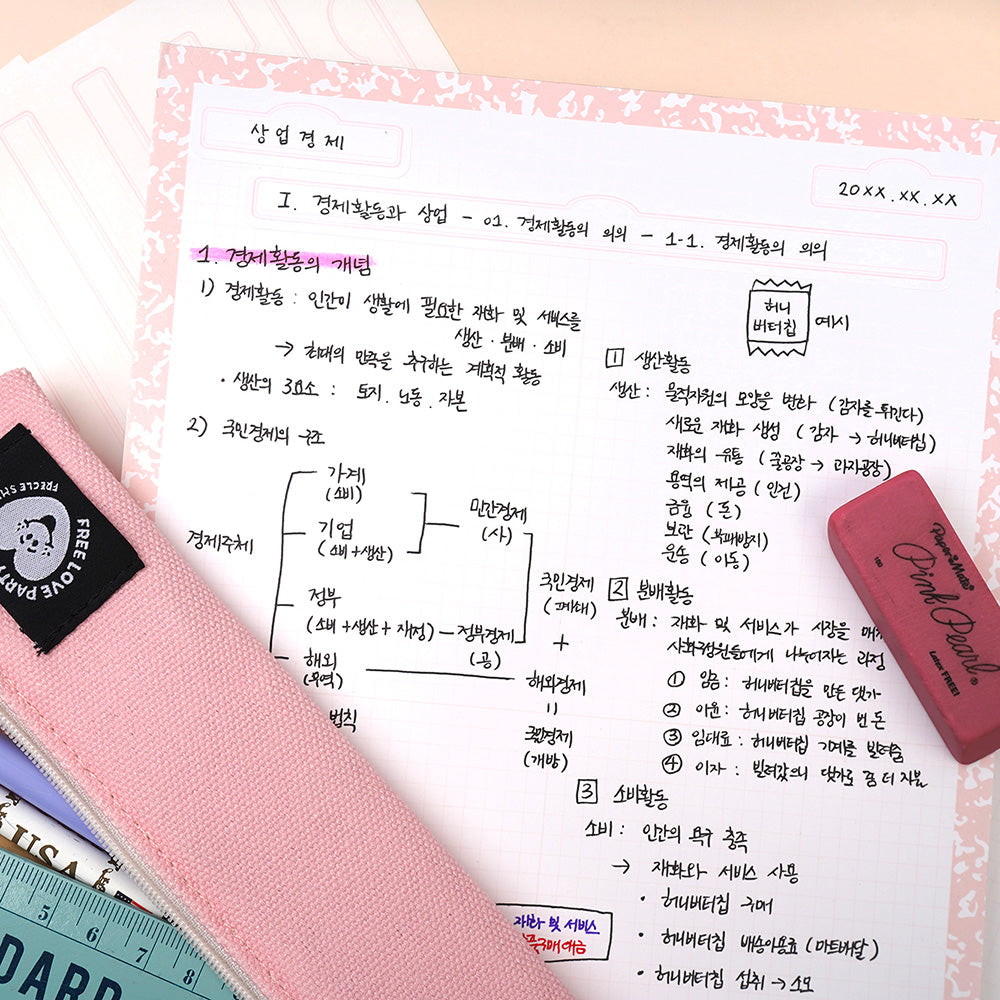 상업경제
20XX.XX.XX
I. 경제활동과 상업 - 01. 경제활동의 의의 - 1-1. 경제활동의 의의
1. 경제활동의 개념
1) 경제활동 : 인간이 생활에 필요한 재화 및 서비스를
생산 · 분배 · 소비
→ 최대의 만족을 추구하는 계획적 활동
· 생산의 3요소 : 토지. 노동. 자본
2) 국민경제의 구조
경제주체
가계
(소비)
기업
(소비+생산)
민간경제
(사)
정부
(소비+생산+재정) - 정부경제
(공)
국민경제
(폐쇄)
+
해외
(무역)
해외경제
=
국민경제
(개방)
법칙
재화 및 서비스
구매대금
허니
버터칩
예시
1 생산활동
생산 : 물적자원의 모양을 변화 (감자를 튀긴다)
새로운 재화 생성 (감자 → 허니버터칩)
재화의 유통 (줄공장 → 과자공장)
용역의 제공 (인건)
금융 (돈)
보관 (부패방지)
운송 (이동)
2 분배활동
분배 : 재화 및 서비스가 시장을 매개
사회구성원들에게 나누어지는 과정
① 임금 : 허니버터칩을 만든 댓가
② 이윤 : 허니버터칩 공장이 번 돈
③ 임대료 : 허니버터칩 기계를 빌려줌
④ 이자 : 빌려갔으니 댓가로 좀 더 지불
3 소비활동
소비 : 인간의 욕구 충족
→ 재화와 서비스 사용
· 허니버터칩 구매
· 허니버터칩 배송이용료 (마트배달)
· 허니버터칩 섭취 → 소모
FREE LOVE PARTY
FRECLE SMI
Paper Mate®
Pink Pearl®
Latex FREE!
100
USA
5 6 7 8
DARD